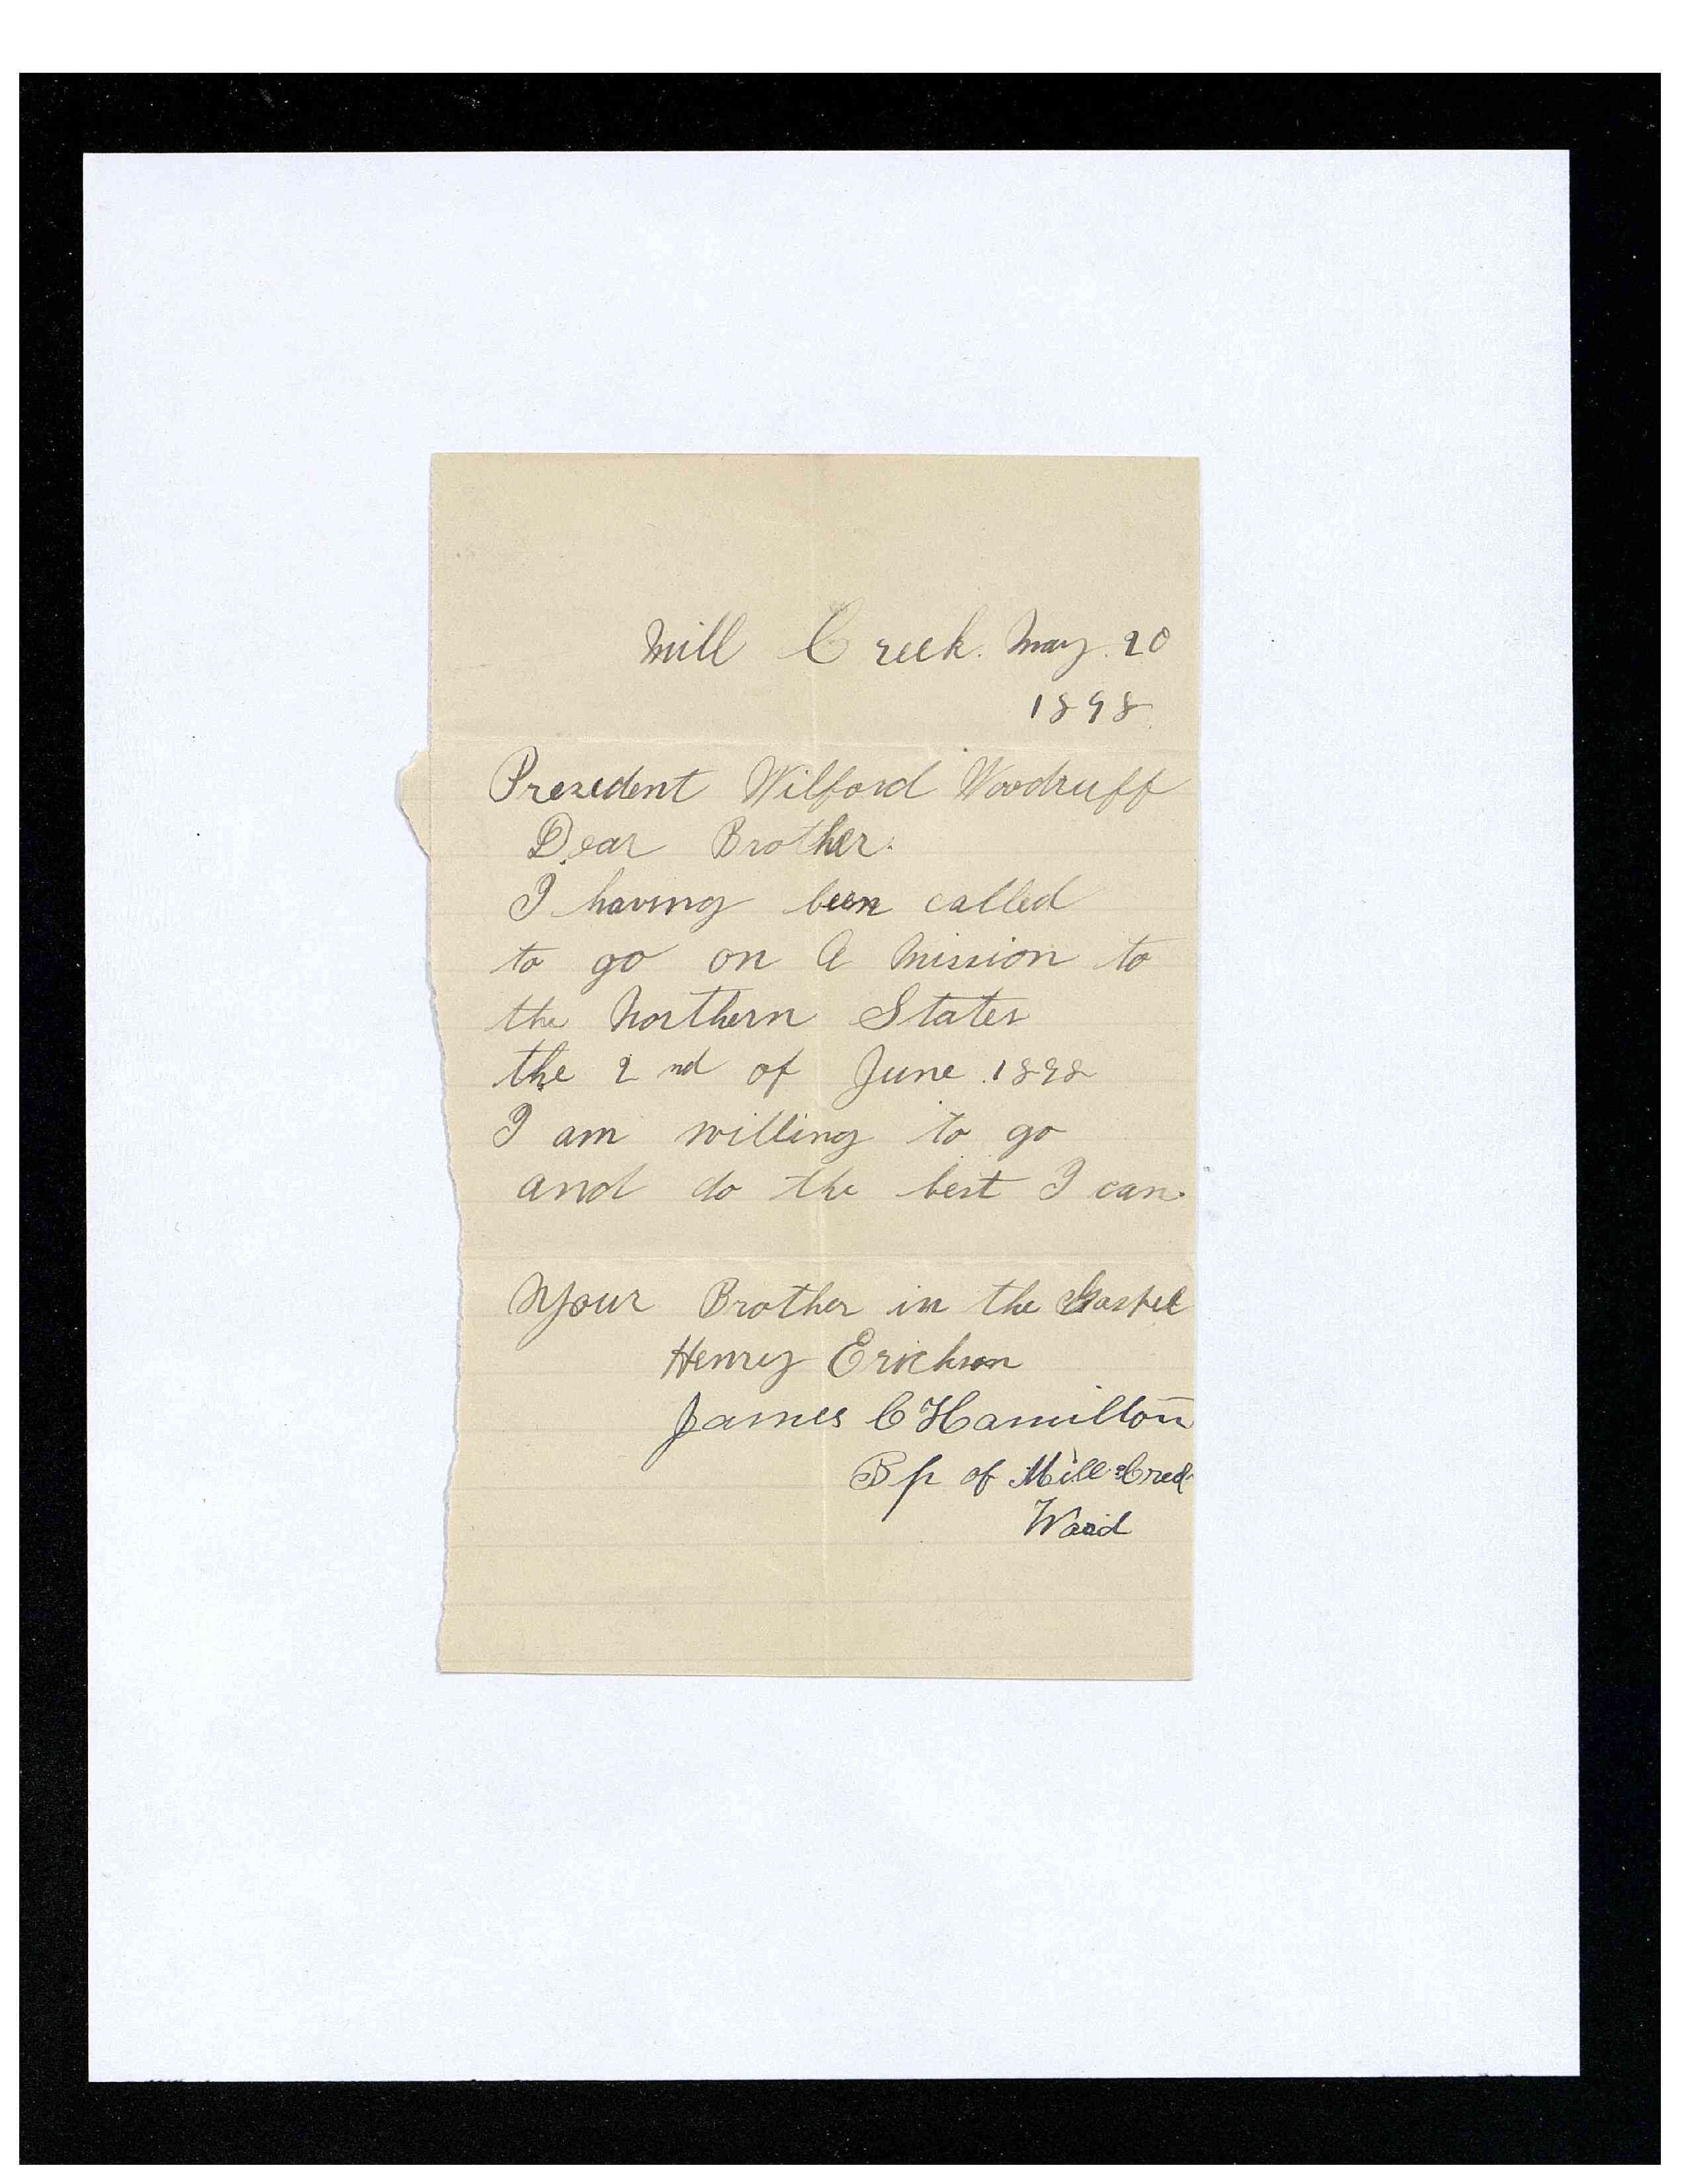 Mill Creek. May. 20
1898.
Presedent Wilford Woodruff
Dear Brother.
I having been called
to go on A Mission to
the Northern States
the 2nd of June. 1898
I am willing to go
and do the best I can.
Your Brother in the Gospel
Henry Erickson
James C Hamilton
Bp of Mill Creek
Ward